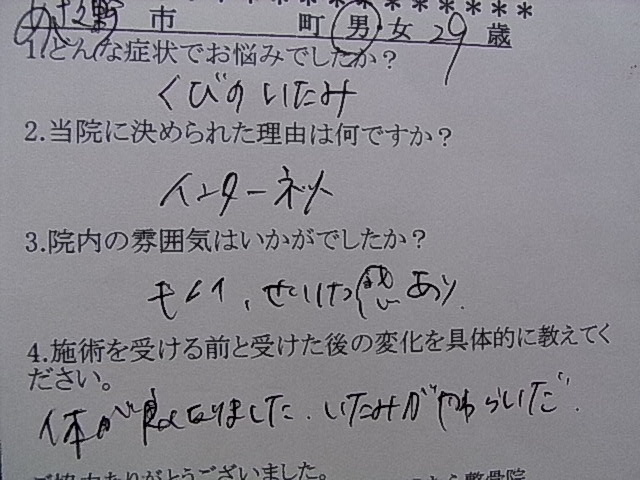 ＊＊＊＊＊＊＊＊＊＊＊＊＊
市 町 男 女 29 歳
1.どんな症状でお悩みでしたか？
くびのいたみ
2.当院に決められた理由は何ですか？
インターネット
3.院内の雰囲気はいかがでしたか？
キレイ、せいけつ感あり.
4.施術を受ける前と受けた後の変化を具体的に教えてく
ださい。
体が良くなりました.いたみがやわらいだ.
ご協力ありがとうございました。 整骨院